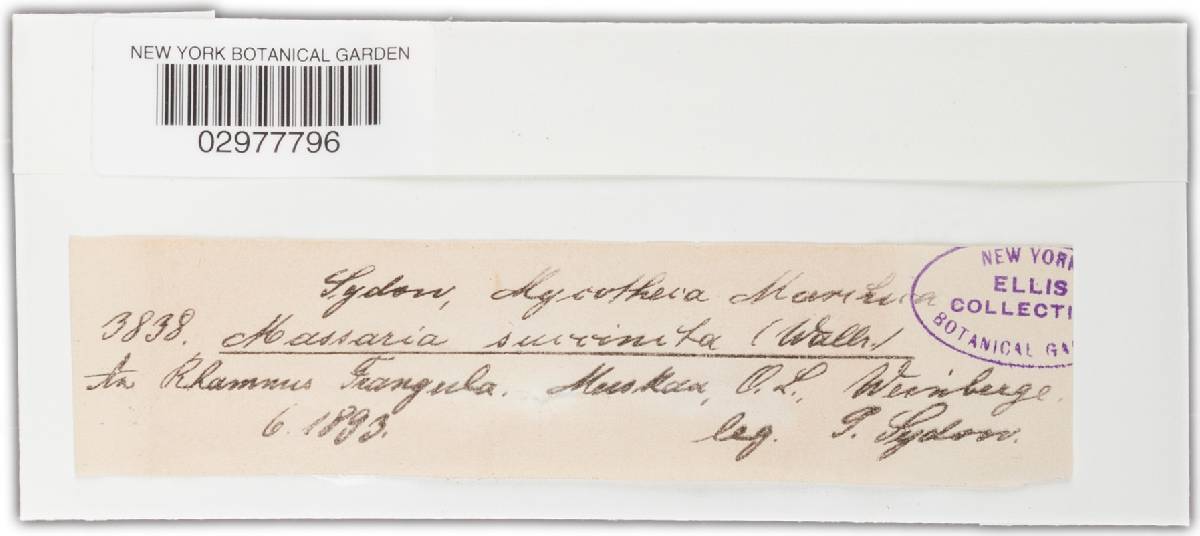 NEW YORK BOTANICAL GARDEN
02977796
Sydow, Mycotheca Marchica
3838. Massaria succinita (Wallr.)
An Rhamnus Frangula. Muskau, O.L., Weinberge.
6. 1893. leg. P. Sydow.
NEW YORK
ELLIS
COLLECTI
BOTANICAL GA